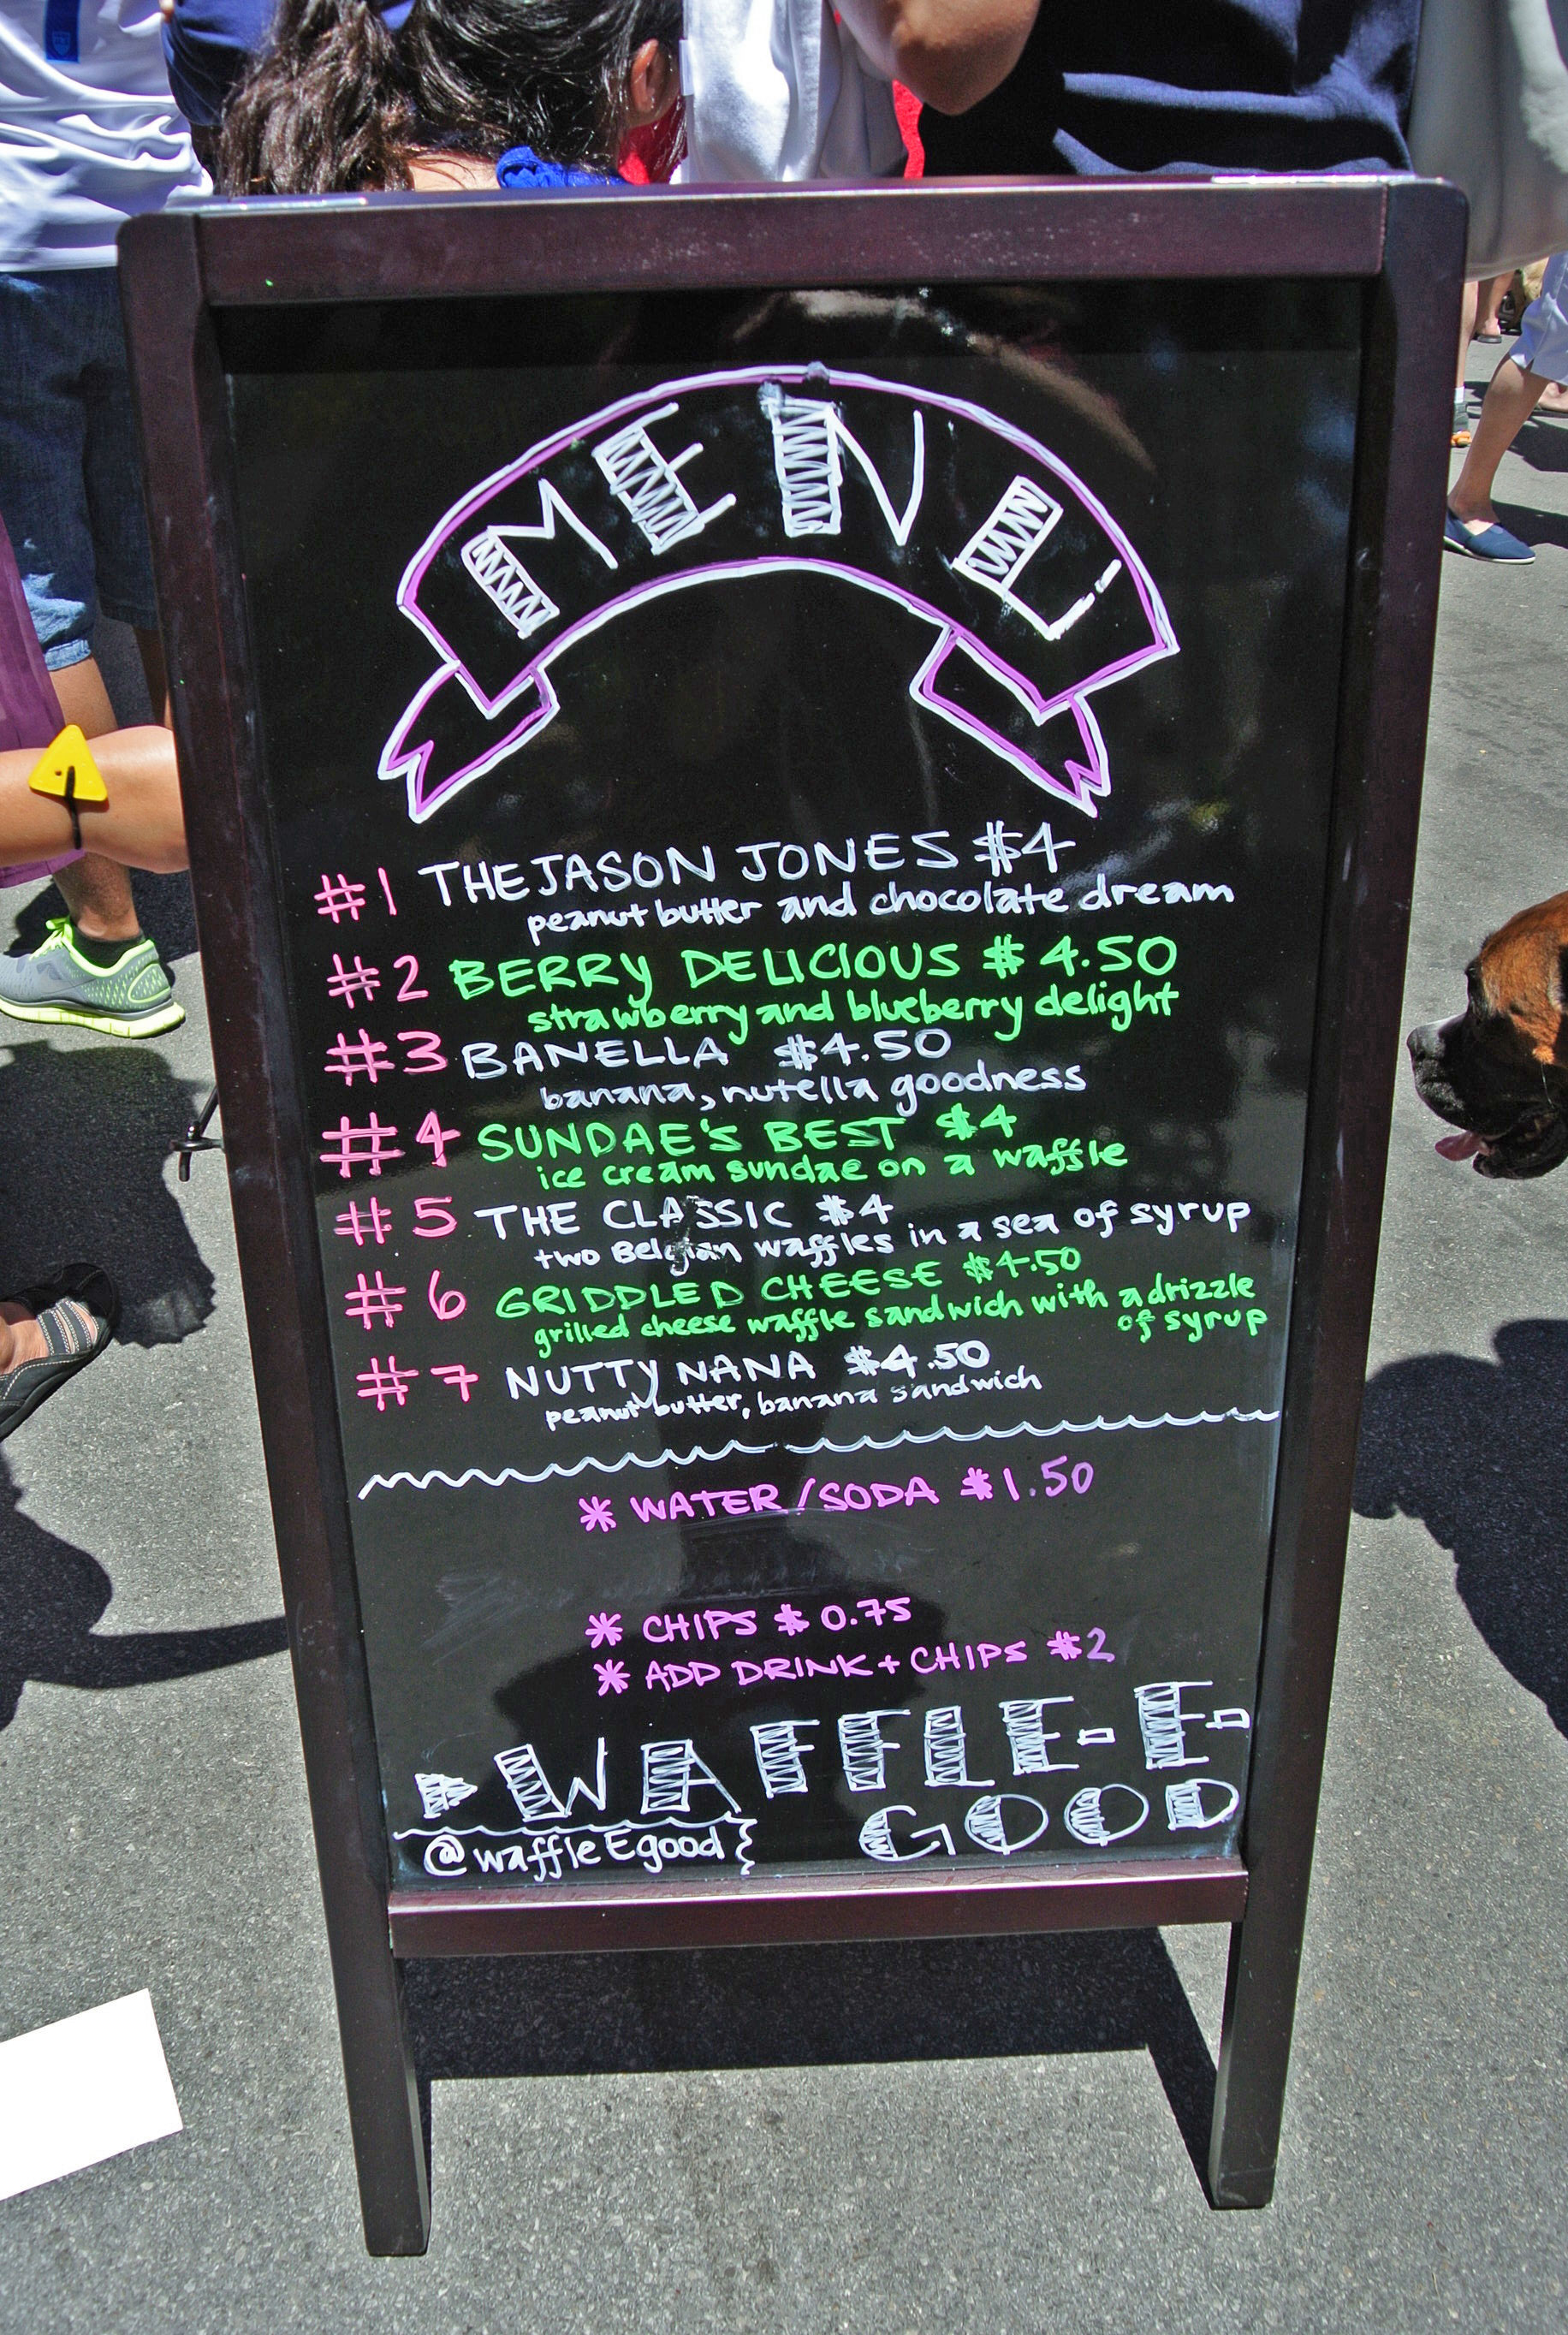 MENU!
#1 THE JASON JONES $4
peanut butter and chocolate dream
#2 BERRY DELICIOUS $4.50
strawberry and blueberry delight
#3 BANELLA $4.50
banana, nutella goodness
#4 SUNDAE'S BEST $4
ice cream sundae on a waffle
#5 THE CLASSIC $4
two Belgian waffles in a sea of syrup
#6 GRIDDLED CHEESE $4.50
grilled cheese waffle sandwich with a drizzle
of syrup
#7 NUTTY NANA $4.50
peanut butter, banana sandwich
* WATER/SODA $1.50
* CHIPS $0.75
* ADD DRINK + CHIPS $2
WAFFLE-E-
GOOD
@waffleEgood